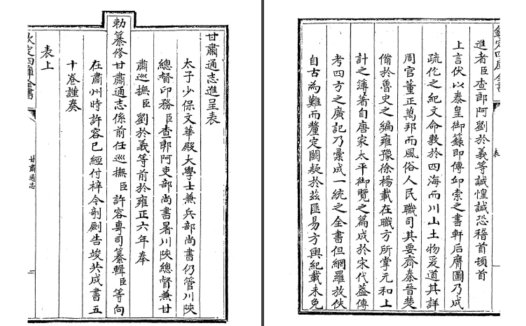 甘肅通志進呈表
太子少保文華殿大學士兼兵部尚書仍管川陝
總督印務臣查郎阿吏部尚書署川陝總督兼甘
肅巡撫臣劉於義等前於雍正六年奉
勅纂修甘肅通志係前任巡撫臣許容專司纂輯臣等向
在肅州時許容已經付梓令剞劂告竣共成書五
十卷謹奏
表上
欽定四庫全書
甘肅通志
欽定四庫全書
表
進者臣查郎阿劉於義等誠惶誠恐稽首頓首
上言伏以秦皇御籙即傳邱索之書軒后膺圖乃成
疏仡之紀文命敷於四海而川山土物爰道其詳
周官董正萬邦而風俗人民職司其要齊秦晉楚
備於魯史之編雍豫徐楊載在職方所掌元和上
計之簿著自唐家太平御覽之篇成於宋代蓋傳
考四方之廣記乃彙成一統之全書但網羅放佚
自古為難而釐定闕疑於茲匪易方輿紀載未免